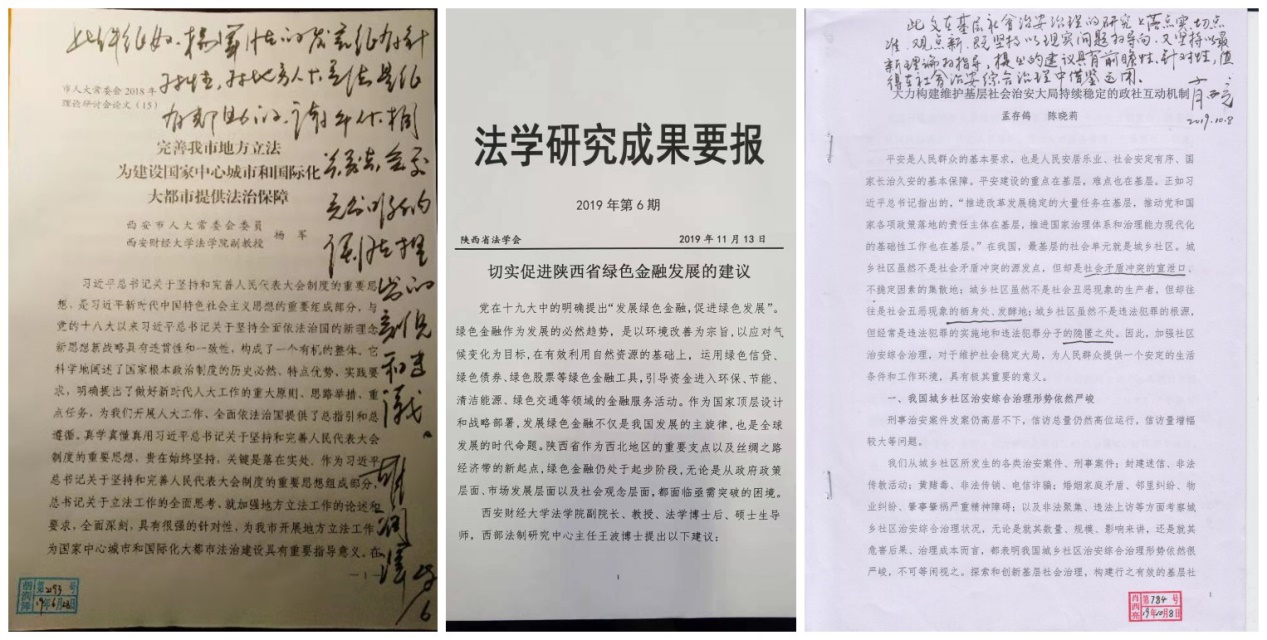 此件很好。杨军同志的发言很有针
对性,对地方人大立法是很
有帮助的。
和建议。
市人大常委会2018年
理论研讨会论文(15)
完善我市地方立法
为建设国家中心城市和国际化
大都市提供法治保障
西安市人大常委会委员
西安财经大学法学院副教授 杨 军
习近平总书记关于坚持和完善人民代表大会制度的重要思
想,是习近平新时代中国特色社会主义思想的重要组成部分,与
党的十八大以来习近平总书记关于坚持全面依法治国的新理念
新思想新战略具有连贯性和一致性,构成了一个有机的整体。它
科学地阐述了国家根本政治制度的历史必然、特点优势、实践要
求,明确提出了做好新时代人大工作的重大原则、思路举措、重
点任务,为我们开展人大工作、全面依法治国提供了总指引和总
遵循。真学真懂真用习近平总书记关于坚持和完善人民代表大会
制度的重要思想,贵在始终坚持,关键是落在实处。作为习近平
总书记关于坚持和完善人民代表大会制度的重要思想组成部分,
总书记关于立法工作的全面思考、就加强地方立法工作的论述和
要求,全面深刻,具有很强的针对性,为我市开展地方立法工作
为国家中心城市和国际化大都市法治建设具有重要指导意义。在
—1—
第2193号
19年6月28日
法学研究成果要报
2019 年第 6 期
陕西省法学会 2019 年 11 月 13 日
切实促进陕西省绿色金融发展的建议
党在十九大中的明确提出“发展绿色金融,促进绿色发展”。
绿色金融作为发展的必然趋势,是以环境改善为宗旨,以应对气
候变化为目标,在有效利用自然资源的基础上,运用绿色信贷、
绿色债券、绿色股票等绿色金融工具,引导资金进入环保、节能、
清洁能源、绿色交通等领域的金融服务活动。作为国家顶层设计
和战略部署,发展绿色金融不仅是我国发展的主旋律,也是全球
发展的时代命题。陕西省作为西北地区的重要支点以及丝绸之路
经济带的新起点,绿色金融仍处于起步阶段,无论是从政府政策
层面、市场发展层面以及社会观念层面,都面临亟需突破的困境。
西安财经大学法学院副院长、教授、法学博士后、硕士生导
师,西部法制研究中心主任王波博士提出以下建议:
1
此文在基层社会治安治理的研究上落点实,切点
准,观点新。既坚持以现实问题为导向,又坚持以最
新理论为指导,提出的建议具有前瞻性、针对性,值
得在社会治安综合治理中借鉴运用。
肖西亮
2019.10.8
大力构建维护基层社会治安大局持续稳定的政社互动机制
孟存鸽 陈晓莉
平安是人民群众的基本要求,也是人民安居乐业、社会安定有序、国
家长治久安的基本保障。平安建设的重点在基层,难点也在基层。正如习
近平总书记指出的,“推进改革发展稳定的大量任务在基层,推动党和国
家各项政策落地的责任主体在基层,推进国家治理体系和治理能力现代化
的基础性工作也在基层。”在我国,最基层的社会单元就是城乡社区。城
乡社区虽然不是社会矛盾冲突的源发点,但却是社会矛盾冲突的宣泄口、
不稳定因素的集散地;城乡社区虽然不是社会丑恶现象的生产者,但却往
往是社会丑恶现象的栖身处、发酵地;城乡社区虽然不是违法犯罪的根源,
但经常是违法犯罪的实施地和违法犯罪分子的隐匿之处。因此,加强社区
治安综合治理,对于维护社会稳定大局,为人民群众提供一个安定的生活
条件和工作环境,具有极其重要的意义。
一、我国城乡社区治安综合治理形势依然严峻
刑事治安案件发案仍高居不下,信访总量仍然高位运行,信访量增幅
较大等问题。
我们从城乡社区所发生的各类治安案件、刑事案件;封建迷信、非法
传教活动;黄赌毒、非法传销、电信诈骗;婚姻家庭矛盾、邻里纠纷、物
业纠纷、肇事肇祸严重精神障碍;以及非法聚集、违法上访等方面考察城
乡社区治安综合治理状况,无论是就其数量、规模、影响来讲,还是就其
危害后果、治理成本而言,都表明我国城乡社区治安综合治理形势依然很
严峻,不可等闲视之。探索和创新基层社会治理,构建行之有效的基层社
1
肖西亮
第784号
19年10月8日